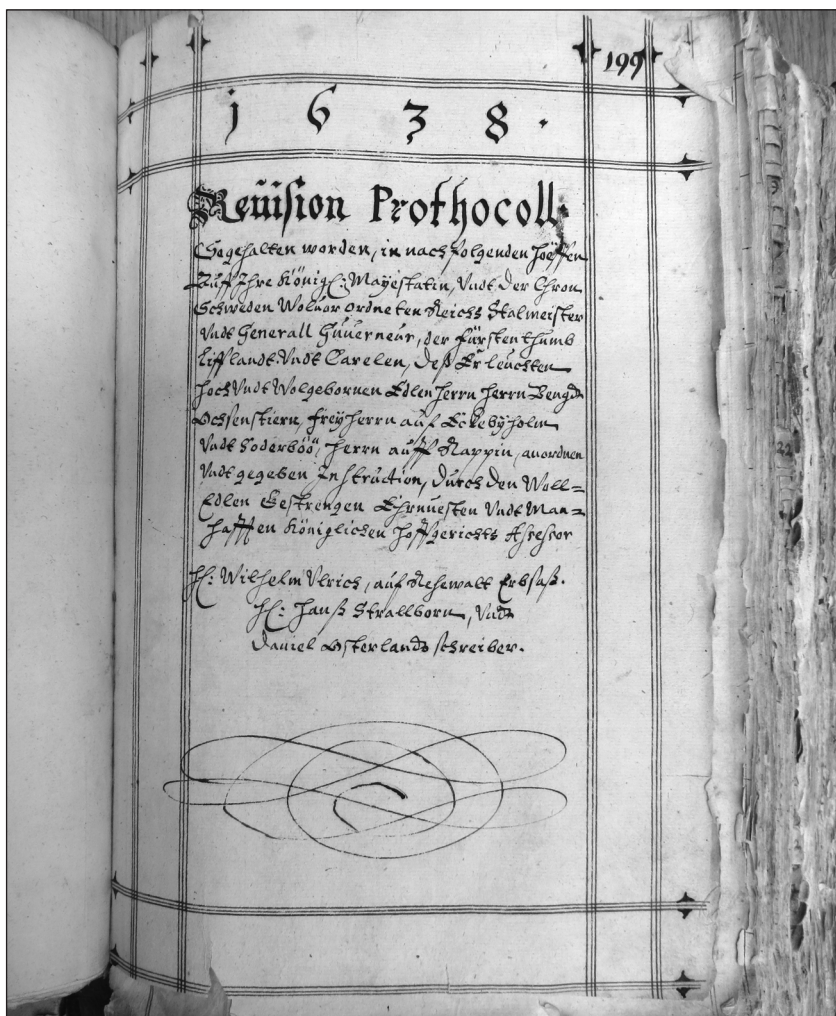 199
1638.
Reuision Prothocoll.
So gehalten worden, in nachfolgenden Höffen
Auff Ihre Königl: Mayestatin, Vndt der Chron
Schweden Woluor ordneten Reichs Stalmeister
Vndt Generall Guuerneur, der Fürstenthumb
Lifflandt Vndt Carelen, deß Erleuchten
Hoch Vndt Wolgebornen Edlen Herrn Herrn Bengdt
Ochsenstiern, Freyherrn auf Eckebyholm
Vndt Soderböö, Herrn auff Rappin, anordnen
Vndt gegeben Instruction, durch den Woll=
Edlen Gestrengen Ehrnuesten Vndt Man=
hafften Königlichen Hoffgerichts Assessor
H: Wilhelm Vlrich, auf Rehewalt Erbsaß.
H: Hanß Strallborn, Vndt
Daniel Osterlandt schreiber.
22